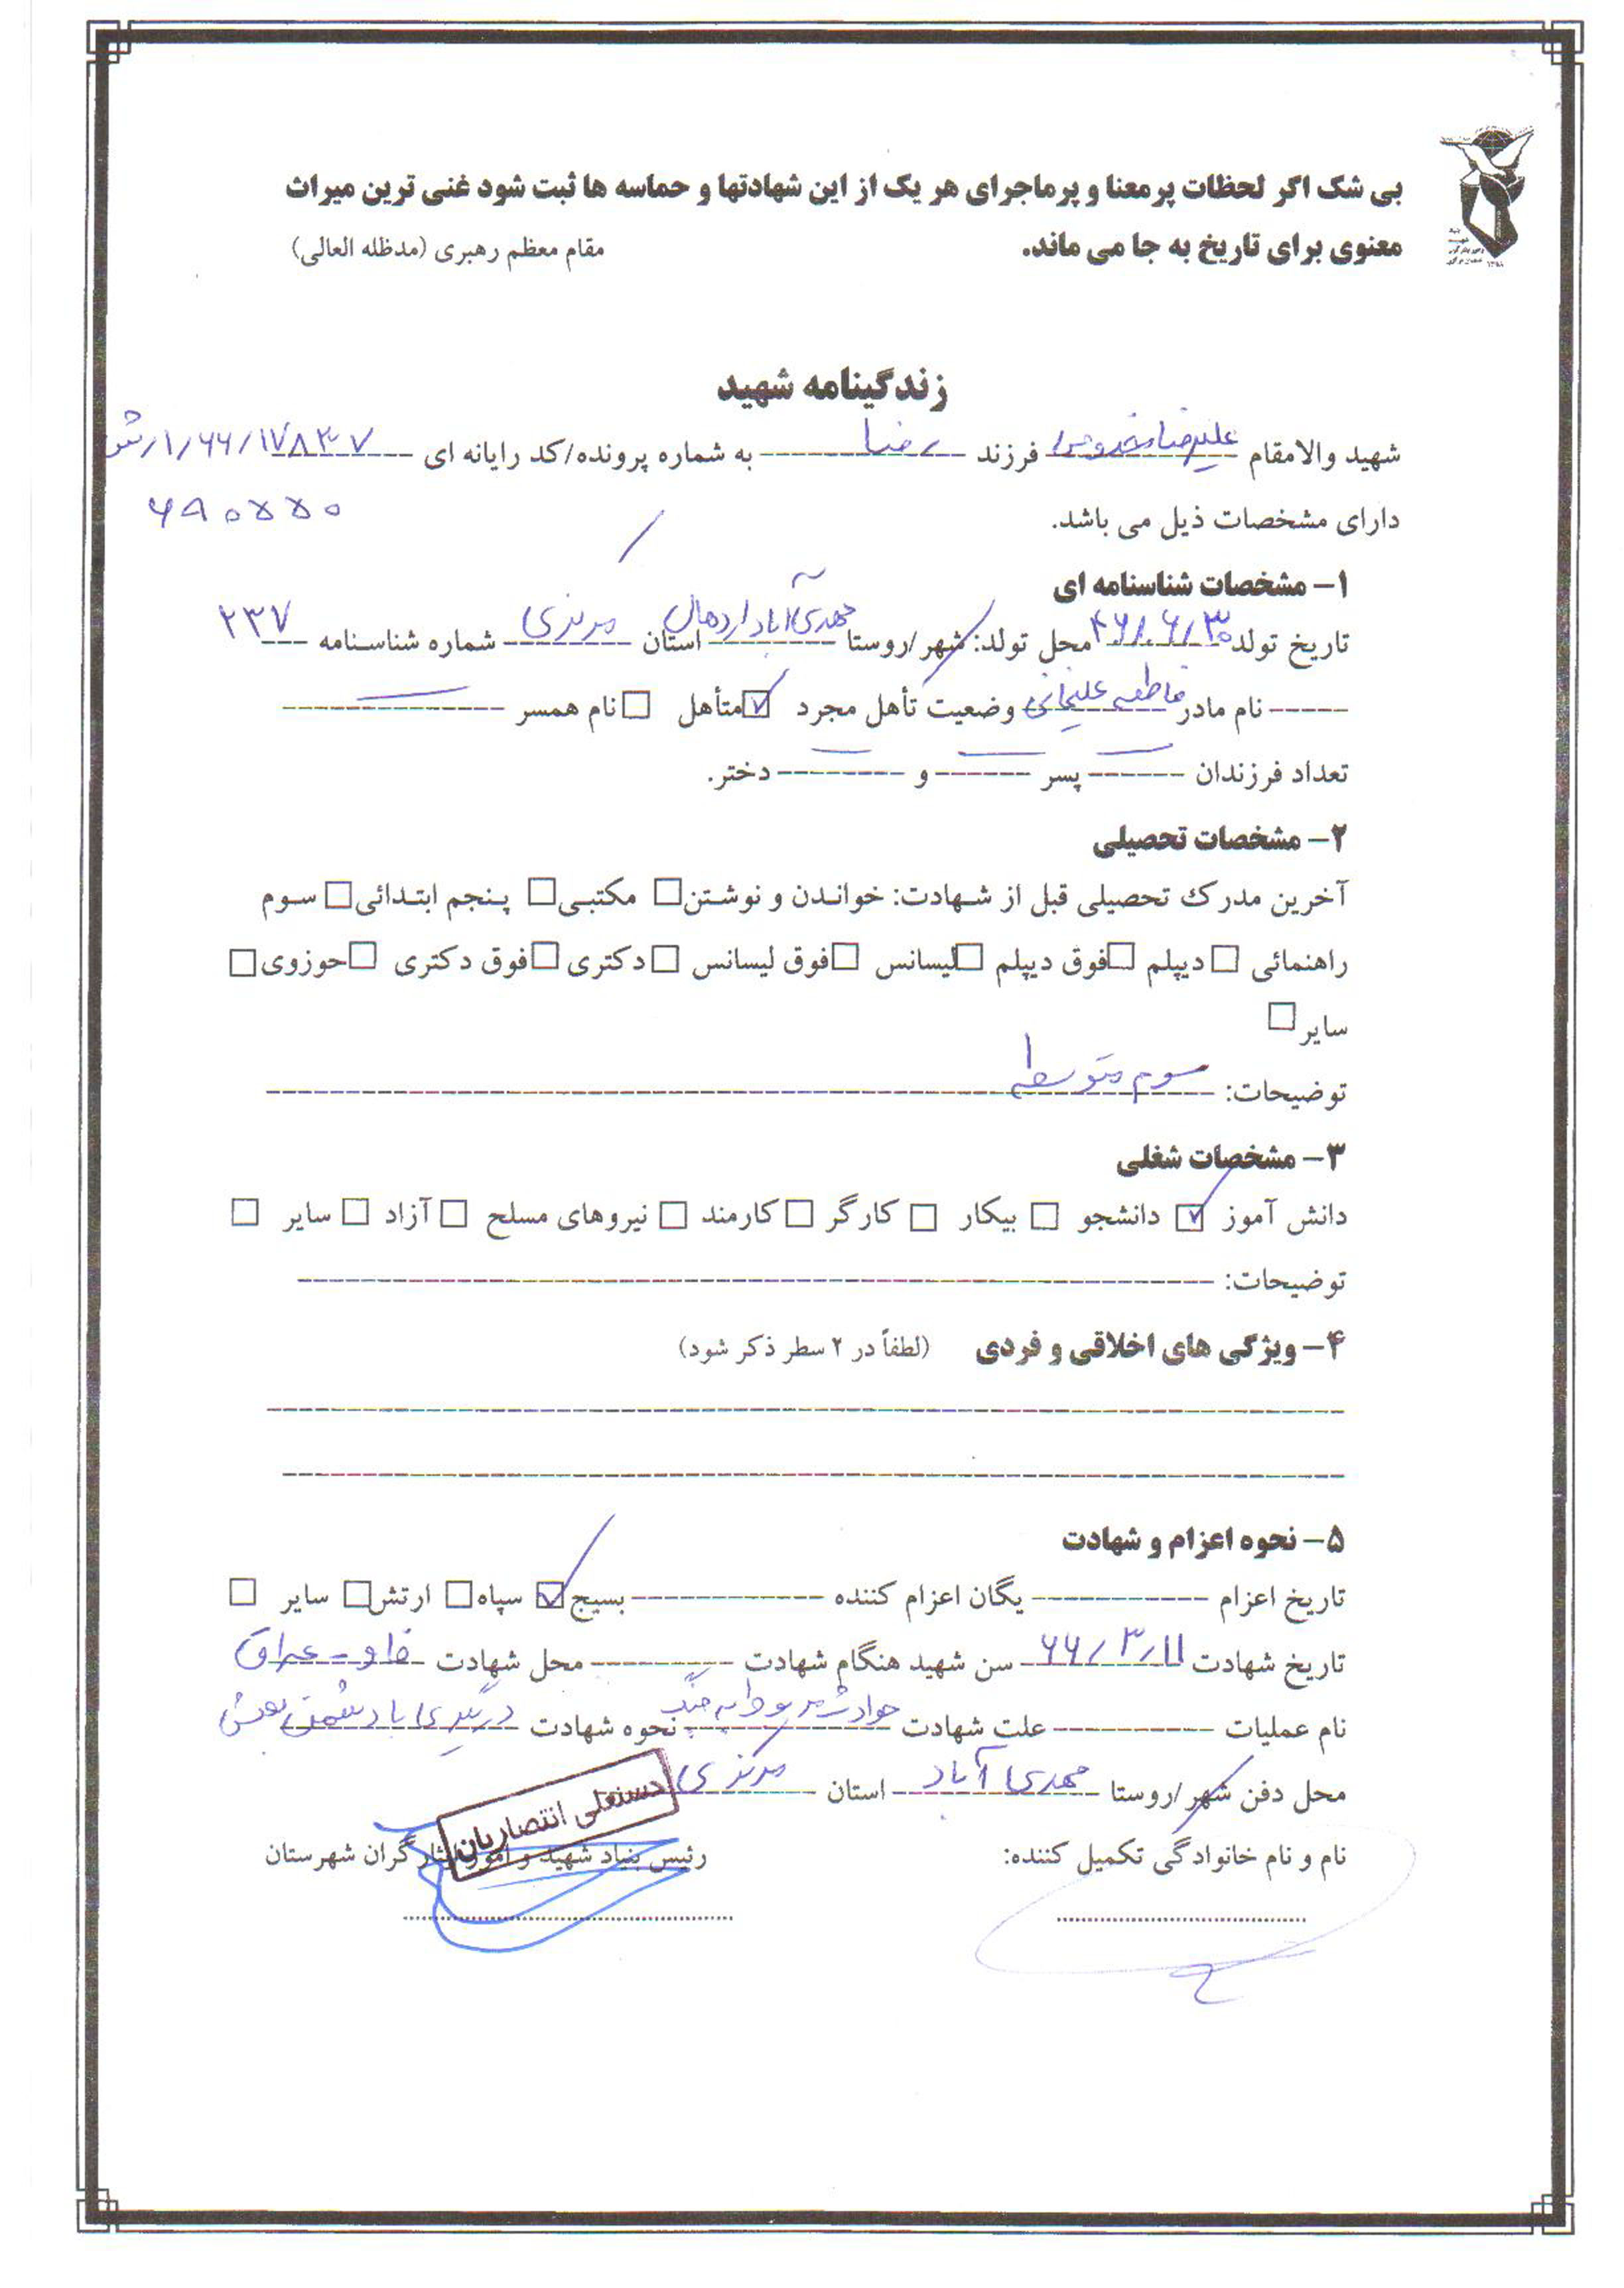 بی شک اگر لحظات پرمعنا و پرماجرای هر یک از این شهادتها و حماسه ها ثبت شود غنی ترین میراث
معنوی برای تاریخ به جا می ماند.    مقام معظم رهبری (مدظله العالی)
زندگینامه شهید
شهید والامقام علیرضا فرزند رضا به شماره پرونده/کد رایانه ای ۱/۶۶/۱۷۸۳۷
دارای مشخصات ذیل می باشد. ۶۹۰۵۵۰
۱- مشخصات شناسنامه ای
تاریخ تولد ۴۶/۶/۳۰ محل تولد: شهر/روستا مهدی آباد اردهال استان مرکزی شماره شناسنامه ۲۳۷
نام مادر فاطمه علیخانی وضعیت تأهل مجرد ☑ متأهل □ نام همسر
تعداد فرزندان پسر و دختر.
۲- مشخصات تحصیلی
آخرین مدرک تحصیلی قبل از شهادت: خواندن و نوشتن □ مکتبی □ پنجم ابتدائی □ سوم
راهنمائی □ دیپلم □ فوق دیپلم □ لیسانس □ فوق لیسانس □ دکتری □ فوق دکتری □ حوزوی □
سایر □
توضیحات: سوم متوسطه
۳- مشخصات شغلی
دانش آموز ☑ دانشجو □ بیکار □ کارگر □ کارمند □ نیروهای مسلح □ آزاد □ سایر □
توضیحات:
۴- ویژگی های اخلاقی و فردی (لطفاً در ۲ سطر ذکر شود)
۵- نحوه اعزام و شهادت
تاریخ اعزام یگان اعزام کننده بسیج ☑ سپاه □ ارتش □ سایر □
تاریخ شهادت ۶۶/۳/۱۱ سن شهید هنگام شهادت محل شهادت فاو - عراق
نام عملیات علت شهادت حوادث مربوط به جنگ نحوه شهادت درگیری با دشمن بعثی
محل دفن شهر/روستا مهدی آباد استان مرکزی
نام و نام خانوادگی تکمیل کننده: رئیس بنیاد شهید و امور ایثارگران شهرستان
انتصاریان